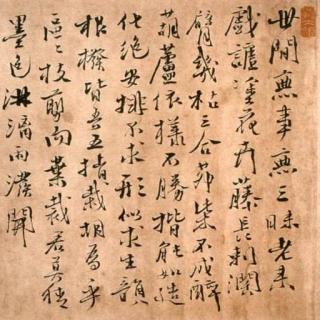 世間無事無三昧老來
戲謔塗花卉藤長刺闊
臂幾枯三合茆柴不成醉
葫蘆依樣不勝揩能如造
化絕安排不求形似求生韻
根撥皆吾五指栽胡為乎
區區枝剪而葉裁君莫猜
墨色淋漓雨潑開